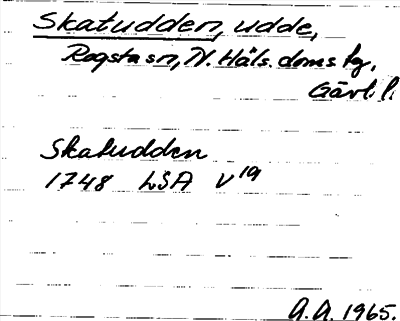 Skatudden, udde,
Rogsta sn, N. Häls. doms hg,
Gävl. l.
Skatudden
1748 LSA V19
A.A. 1965.